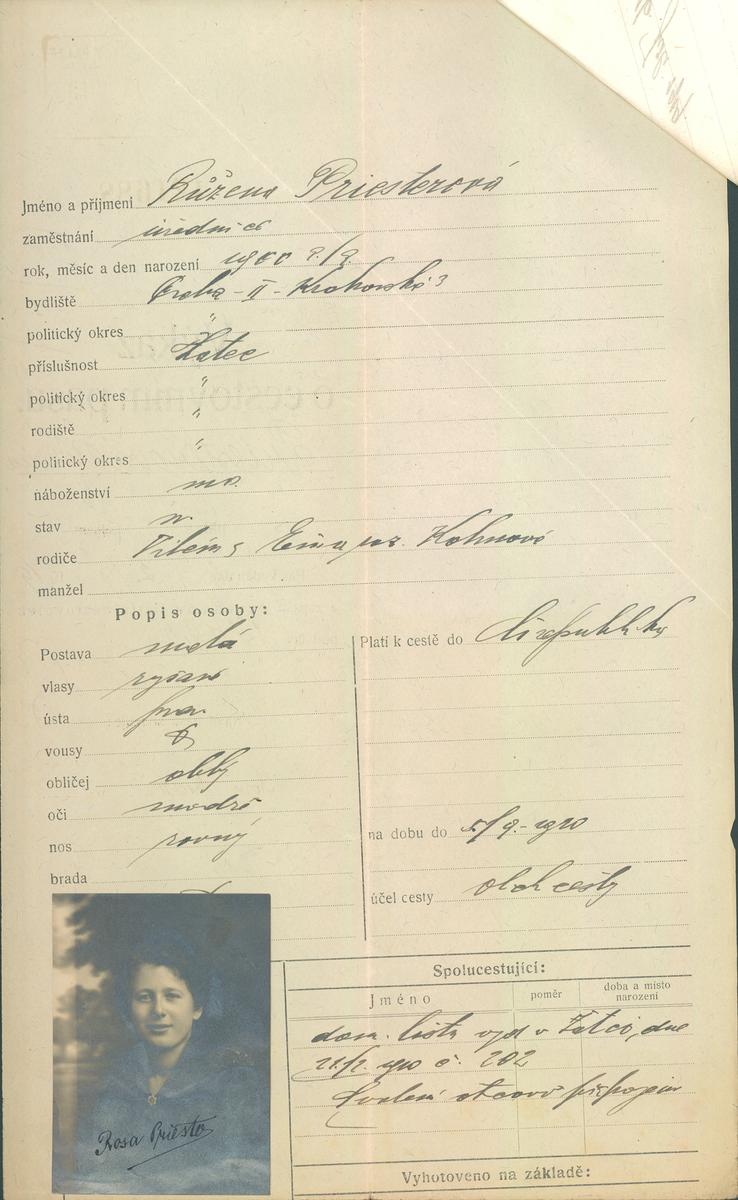 Jméno a příjmení Růžena Priesterová
zaměstnání úřednice
rok, měsíc a den narození 1900
bydliště Praha - II - Krakovská 3
politický okres "
příslušnost Žatec
politický okres "
rodiště "
politický okres "
náboženství mo.
stav n.
rodiče Vilém Ema roz. Kohnová
manžel
Popis osoby:
Postava malá
vlasy
ústa
vousy
obličej oblý
oči modré
nos rovný
brada
Platí k cestě do
na dobu do 5/9 - 1920
účel cesty obch cesty
Spolucestující:
Jméno poměr doba a místo narození
dom. lista vyd v Žatci, dne
1920 č. 202
Svolení otcovo připojeno
Vyhotoveno na základě:
Rosa Priester